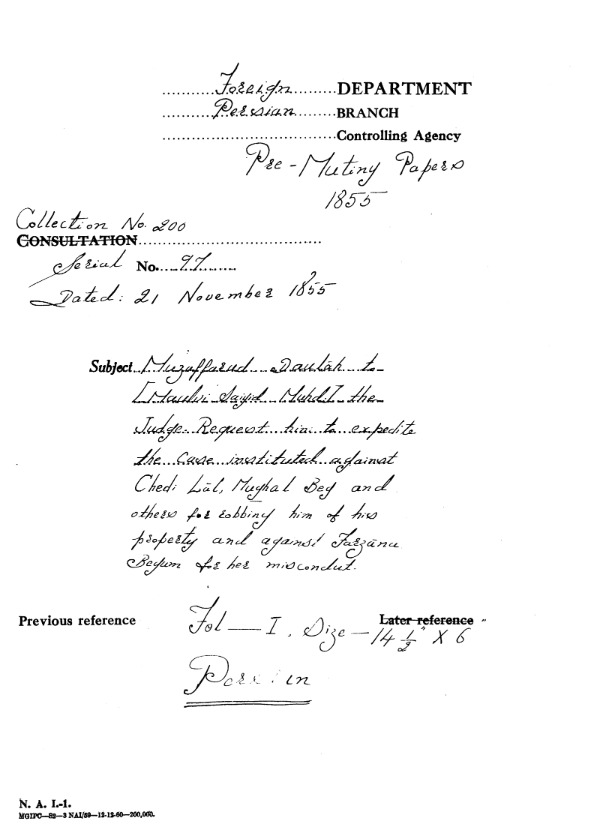 Foreign DEPARTMENT
Persian BRANCH
Controlling Agency
Pre-Mutiny Papers
1855
Collection No. 200
CONSULTATION
Serial No. 97
Dated: 21 November 1855 ?
Subject Muzaffarud Daulah to
[Maulvi Sayid Muhd.] the
Judge. Request him to expedite
the Case instituted against
Chedi Lāl, Mughal Beg and
others for robbing him of his
property and against Farzāna
Begum for her misconduct.
Previous reference
Later reference
Fol — I, Size — 14 1/2" X 6"
Persian
N. A. I.-1.
MGIPC—S2—3 NAI/59—12-12-60—200,000.